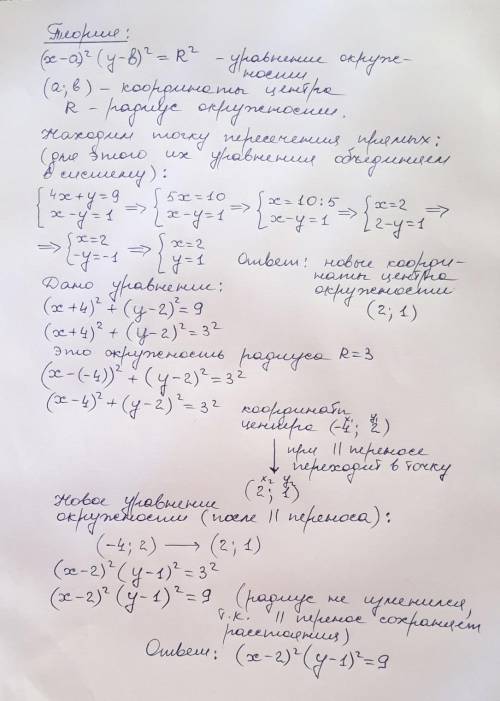 Теория:
(x-a)² (y-в)² = R² - уравнение окруж-
ности
(a; в) - координаты центра
R - радиус окружности.
Находим точку пересечения прямых:
(для этого их уравнения объединяем
в систему):
{4x+y=9 x-y=1 => {5x=10 x-y=1 => {x=10:5 x-y=1 => {x=2 2-y=1 =>
=> {x=2 -y=-1 => {x=2 y=1 Ответ: новые коорди-
наты центра
окружности
(2; 1)
Дано уравнение:
(x+4)² + (y-2)² = 9
(x+4)² + (y-2)² = 3²
Это окружность радиуса R=3
(x-(-4))² + (y-2)² = 3²
(x-4)² + (y-2)² = 3² координаты
x₁ y₁
центра (-4; 2)
↓ при || переносе
переходит в точку
x₂ y₂
(2; 1)
Новое уравнение
окружности (после || переноса):
(-4; 2) → (2; 1)
(x-2)² (y-1)² = 3²
(x-2)² (y-1)² = 9 (радиус не изменился,
т.к. || перенос сохраняет
расстояния)
Ответ: (x-2)² (y-1)² = 9